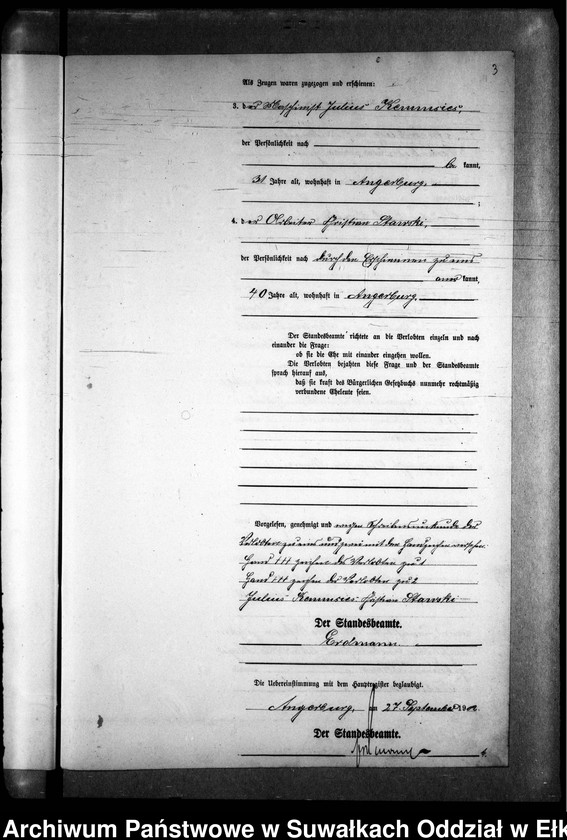 3
Als Zeugen waren zugezogen und erschienen:
3. der Maschinist Julius Kemmsies,
der Persönlichkeit nach
be kannt,
31 Jahre alt, wohnhaft in Angerburg.
;
4. der Arbeiter Christian Stawski,
der Persönlichkeit nach durch den Erschienenen zu eins
aner kannt,
40 Jahre alt, wohnhaft in Angerburg.
Der Standesbeamte richtete an die Verlobten einzeln und nach
einander die Frage:
ob sie die Ehe mit einander eingehen wollen.
Die Verlobten bejahten diese Frage und der Standesbeamte
sprach hierauf aus,
daß sie kraft des Bürgerlichen Gesetzbuchs nunmehr rechtmäßig
verbundene Eheleute seien.
Vorgelesen, genehmigt und wegen Schreibensunkunde der
Verlobten zu eins und zwei mit den Handzeichen versehen.
Hand +++ zeichen des Verlobten zu 1
Hand +++ zeichen der Verlobten zu 2
Julius Kemmsies Christian Stawski
Der Standesbeamte.
Erdmann.
Die Uebereinstimmung mit dem Hauptregister beglaubigt.
Angerburg, am 27. September 190
Der Standesbeamte.
Erdmann
4.
Archiwum Państwowe w Suwałkach Oddział w Ełk